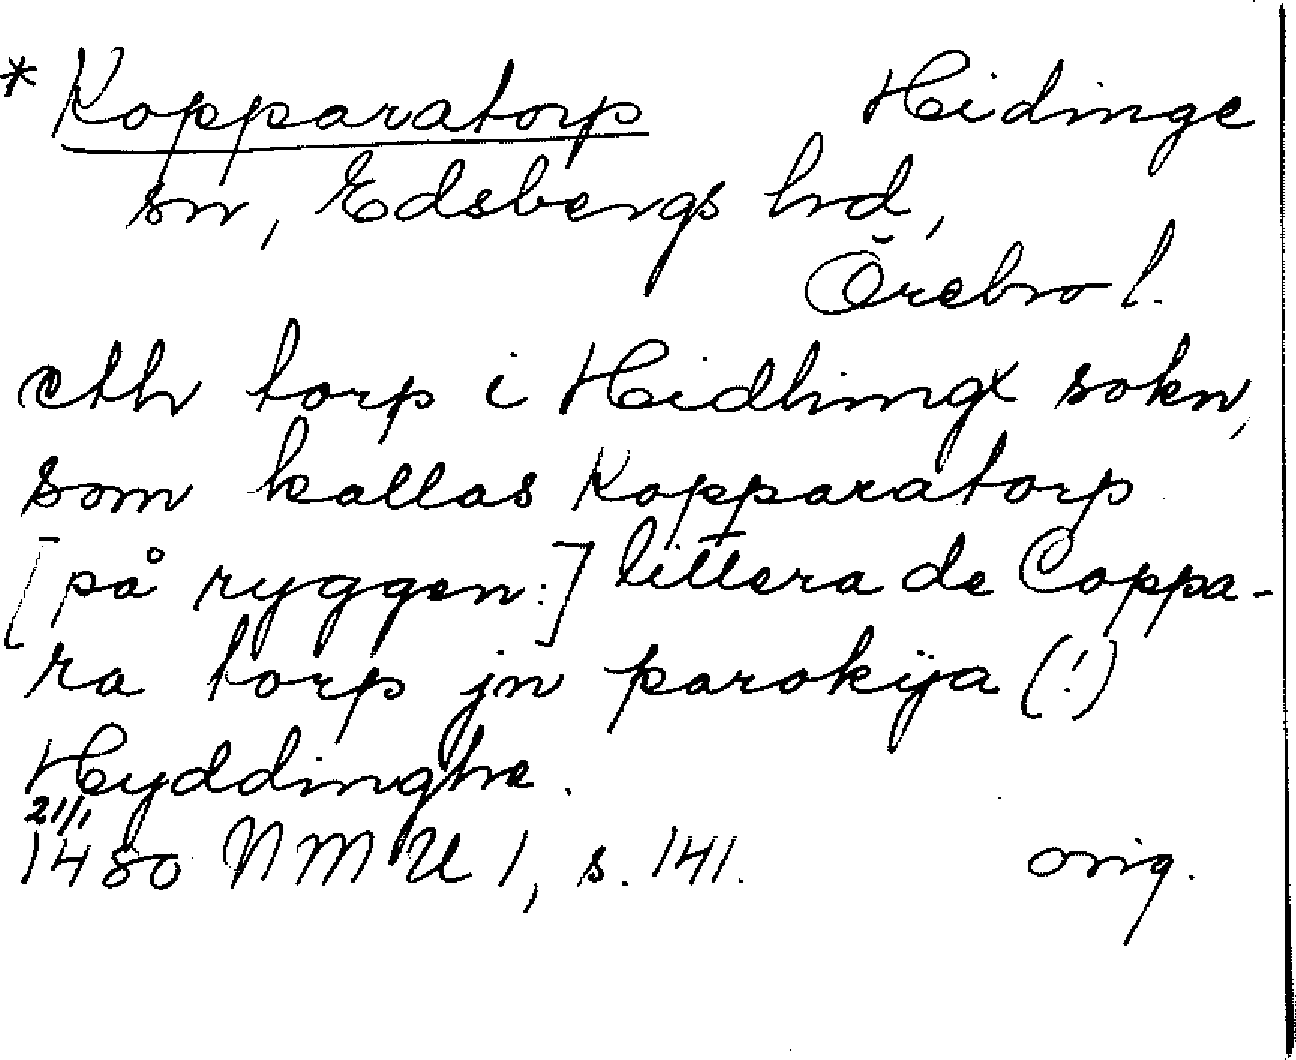 * Kopparatorp Hidinge
sn, Edsbergs hrd,
Örebro l.
eth torp i Hidhingx sokn,
som kallas Kopparatorp
[på ryggen:] littera de Coppa-
ra torp jn parokija (!)
Hyddinghe.
21/1
1480 NMU 1, s. 141. orig.